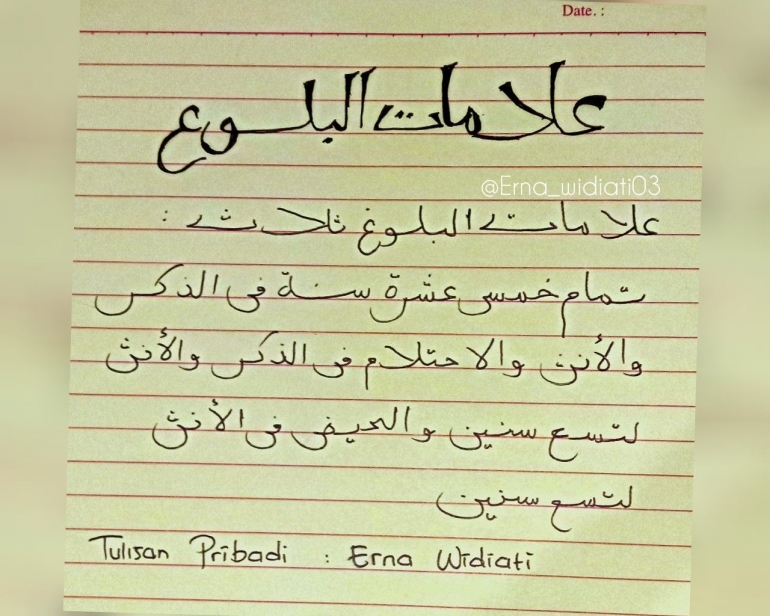 Date. :
علامات البلوغ
@Erna_widiati03
علامات البلوغ ثلاث :
تمام خمس عشرة سنة فى الذكر
والأنثى والاحتلام فى الذكر والأنثى
لتسع سنين والحيض فى الأنثى
لتسع سنين
Tulisan Pribadi : Erna Widiati